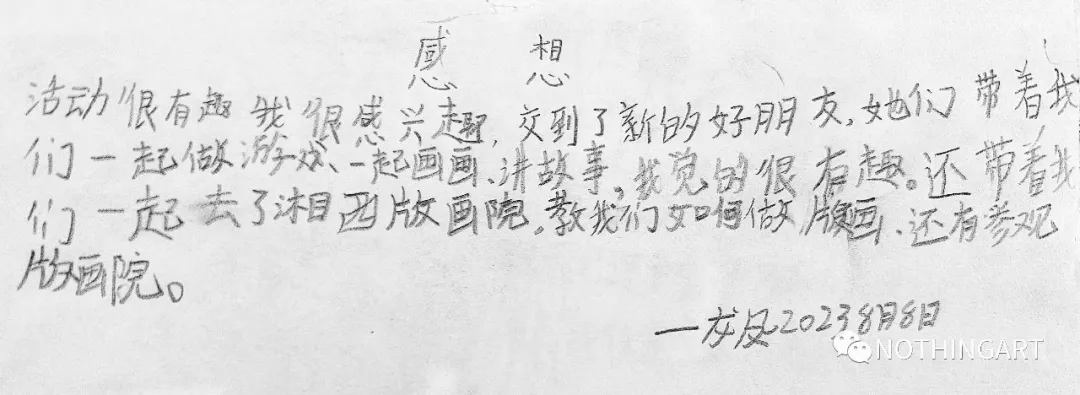 感想
活动很有趣我很感兴趣,交到了新的好朋友,她们带着我
们一起做游戏、一起画画、讲故事,我觉的很有趣。还带着我
们一起去了湘西版画院,教我们如何做版画、还有参观
版画院。
—龙凤2023 8月8日
NOTHINGART